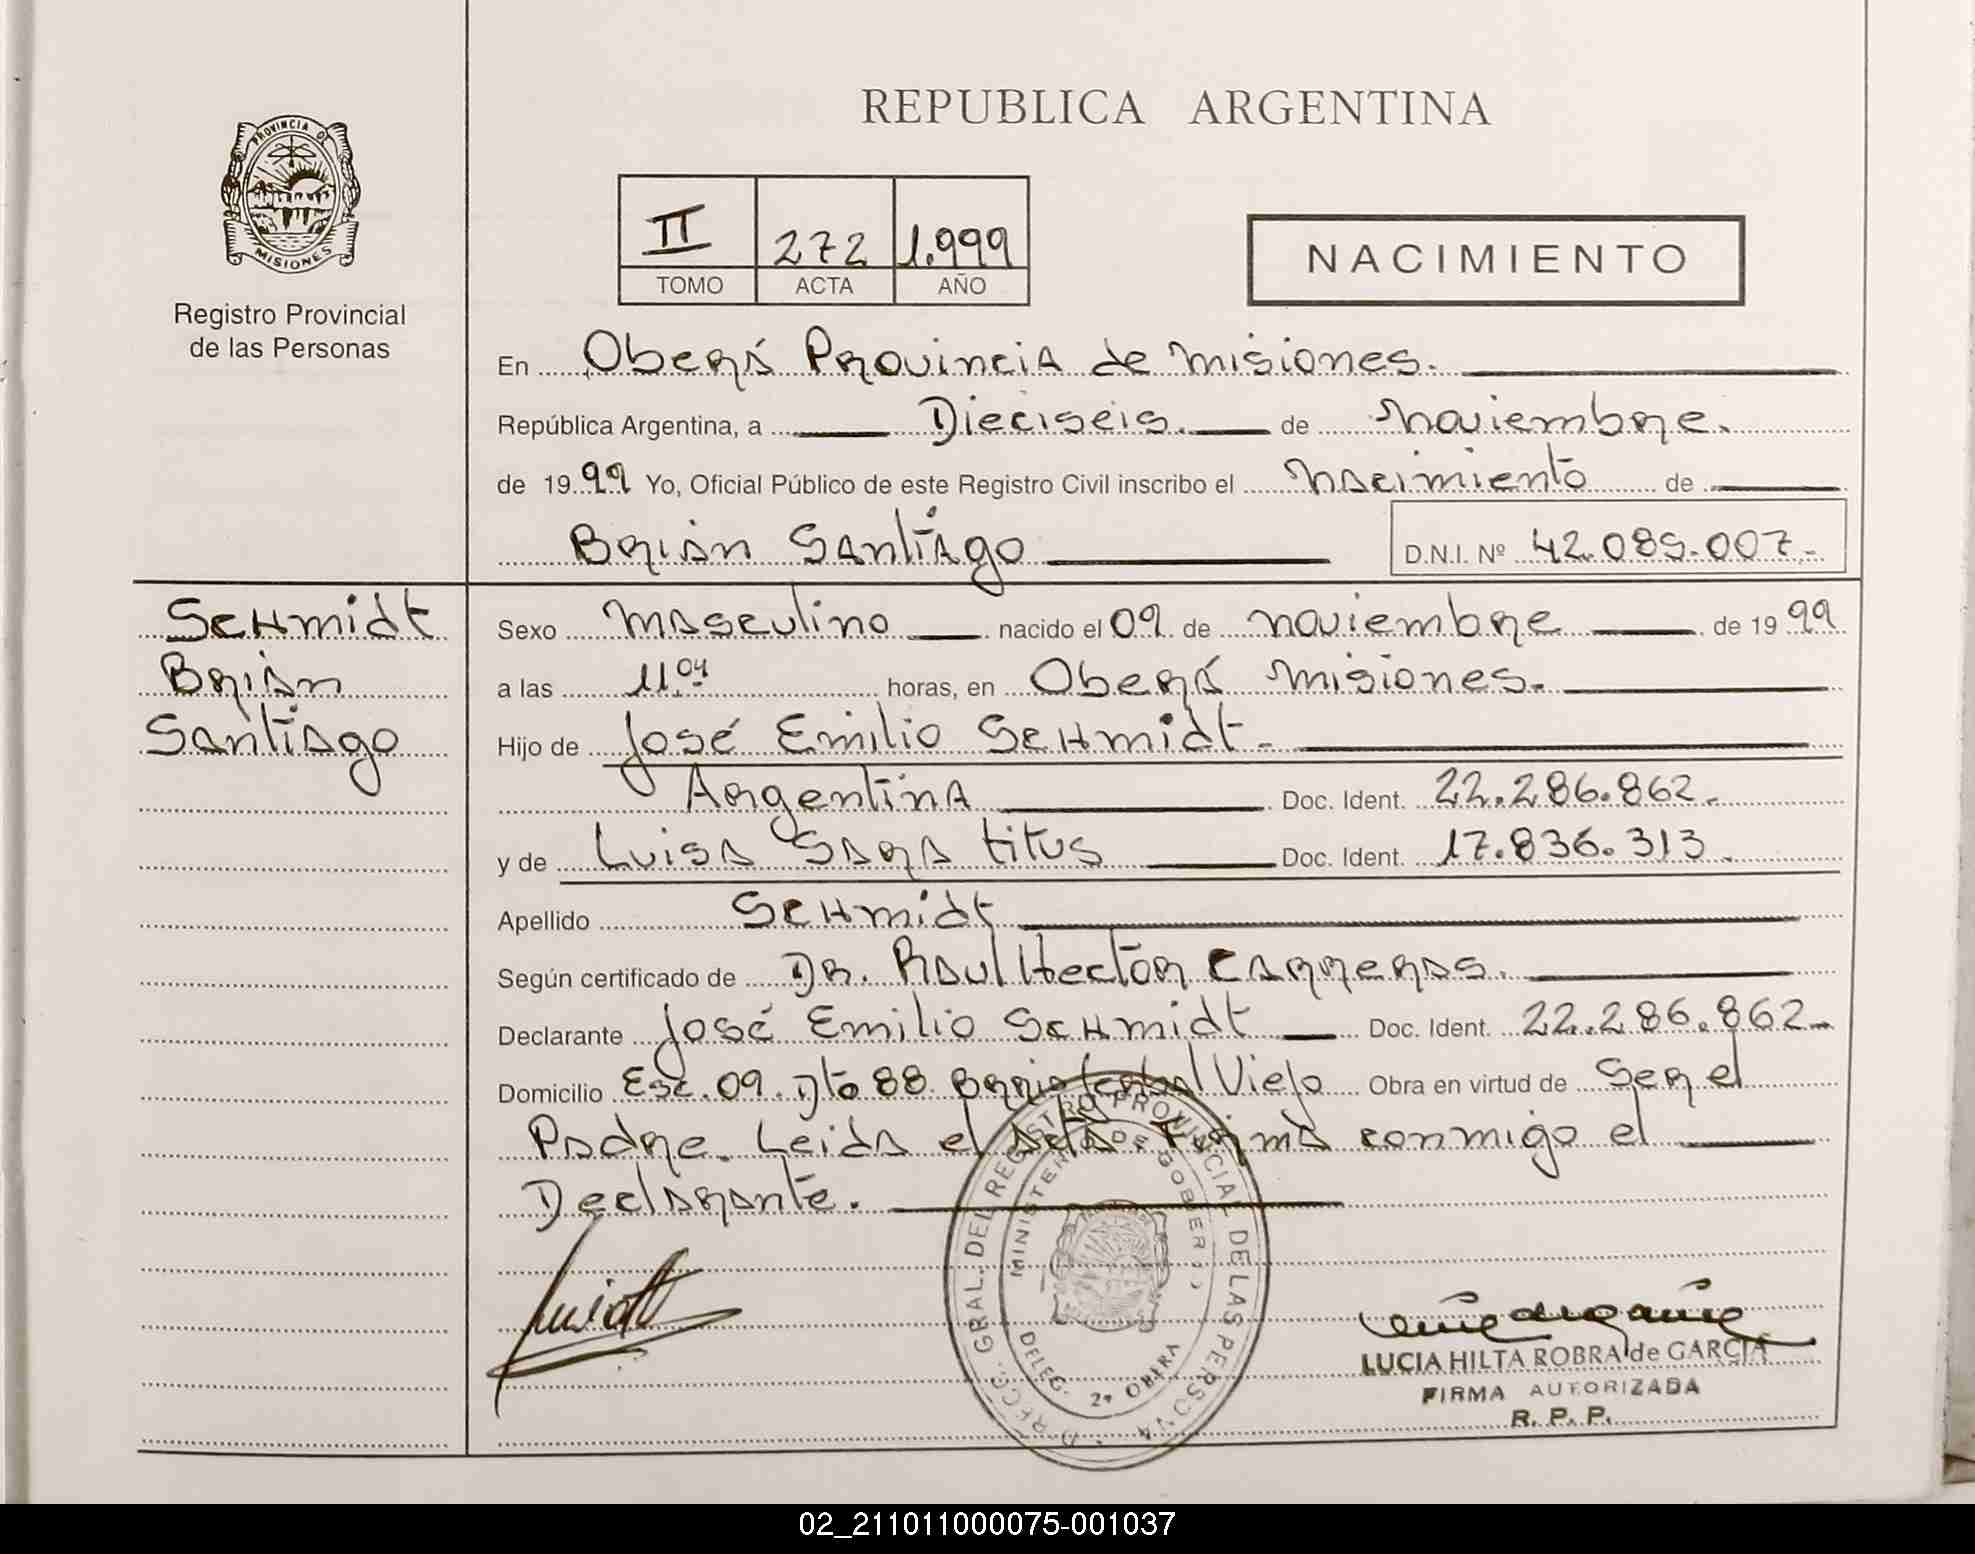 REPUBLICA ARGENTINA
PROVINCIA DE
MISIONES
Registro Provincial
de las Personas
II 272 1.999
TOMO ACTA AÑO
NACIMIENTO
En Oberá Provincia de Misiones.
República Argentina, a Dieciseis. de Noviembre.
de 1999 Yo, Oficial Público de este Registro Civil inscribo el Nacimiento de
Brian Santiago D.N.I. Nº 42.085.007.-
Schmidt
Brian
Santiago
Sexo Masculino nacido el 09 de noviembre de 1999
a las 11.04 horas, en Oberá Misiones.
Hijo de José Emilio Schmidt.
Argentina Doc. Ident. 22.286.862.
y de Luisa Sara titus Doc. Ident. 17.836.313.
Apellido Schmidt
Según certificado de Dr. Raul Hector Carreras.
Declarante José Emilio Schmidt Doc. Ident. 22.286.862.
Domicilio Esc. 09. Dto 88. Viejo Obra en virtud de Ser el
Padre. Leida el acta Firma conmigo el
Declarante.
DIRECC. GRAL. DEL REGISTRO PROVINCIAL DE LAS PERSONAS
MINISTERIO DE GOBIERNO
DELEG. 2ª OBERA
LUCIA HILTA ROBRA de GARCIA
FIRMA AUTORIZADA
R. P. P.
02_211011000075-001037